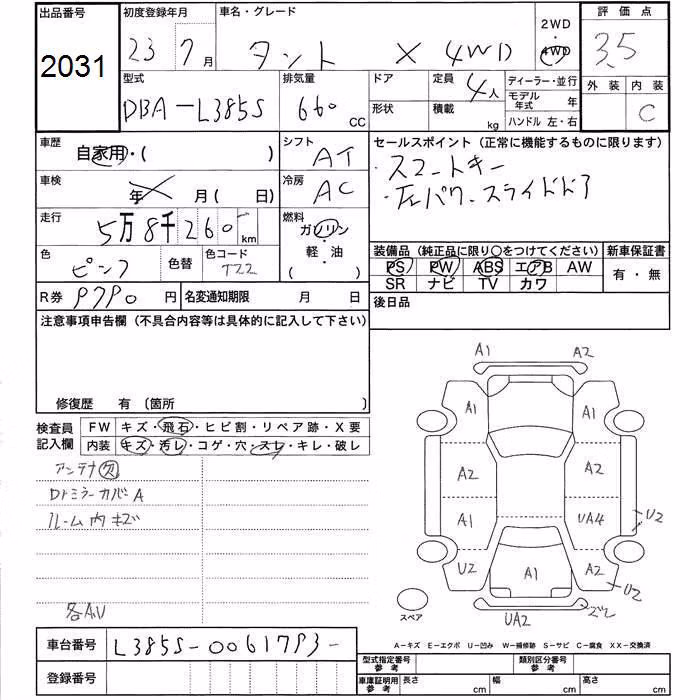 出品番号
2031
初度登録年月
23 7月
車名・グレード
タント X 4WD
2WD
4WD
評価点
3.5
外装 内装
C
型式
DBA-L385S
排気量
660 CC
ドア
形状
定員
4人
積載
kg
ディーラー・並行
モデル年式 年
ハンドル 左・右
車歴
自家用・( )
シフト
AT
セールスポイント(正常に機能するものに限ります)
・スマートキー
・左パワースライドドア
車検
年 月 ( 日)
冷房
AC
走行
5万8千260 km
燃料
ガソリン
・
軽・油
( )
色
ピンク
色替
色コード
T22
装備品(純正品に限り○をつけてください)
新車保証書
PS PW ABS エアB AW
SR ナビ TV カワ
有・無
R券 9790 円
名変通知期限 月 日
後日品
注意事項申告欄(不具合内容等は具体的に記入して下さい)
修復歴 有 〔箇所 〕
検査員記入欄
FW キズ・飛石・ヒビ割・リペア跡・X要
内装 キズ・汚レ・コゲ・穴・スレ・キレ・破レ
アンテナ欠
Dドミラーカバー A
ルーム内キズ
各AU
A1 A2
A1 A1
A2 A2
A1 UA4 U2
U2 A1 A2 U2
UA2
スペア
A-キズ E-エクボ U-凹み W-補修跡 S-サビ C-腐食 XX-交換済
車台番号
L385S-0061793-
登録番号
型式指定番号 参考
類別区分番号 参考
車庫証明用 参考
長さ cm
幅 cm
高さ cm